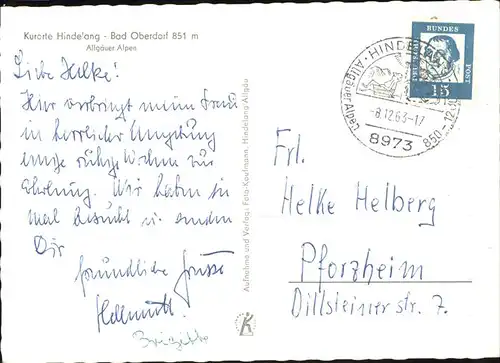 Kurorte Hindelang - Bad Oberdorf 851 m
Allgäuer Alpen
Liebe Helke!
Hier verbringt meine Frau
in herrlicher Umgebung
einige ruhige Wochen zur
Erholung. Wir haben sie
mal besucht u. senden
Dir
freundliche Grüsse
Hellmuth
Brigitte
Aufnahme und Verlag: Foto-Kaufmann, Hindelang/Allgäu
K
DEUTSCHE
BUNDES
POST
15
HINDELANG
Allgäuer Alpen
-8.12.63-17
8973
850-12
Frl.
Helke Helberg
Pforzheim
Dillsteiner str. 7.